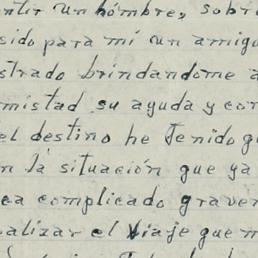 ntir un hómbre, sobre
sido para mí un amigo
strado brindandome a
mistad su ayuda y con
el destino he Tenido qu
n la situación que ya
ea complicado gravem
alizar el viaje que m